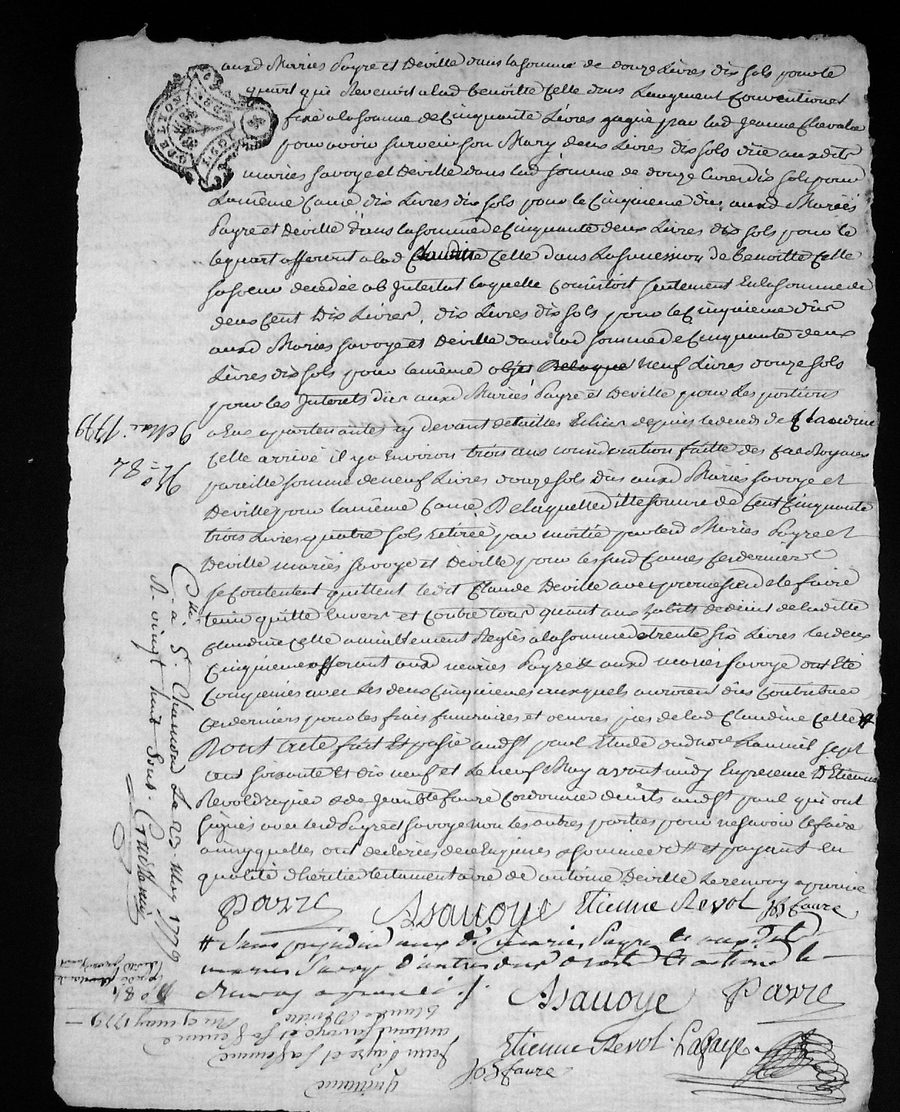 auxd Mariés Payre et Deville dans la somme de douze Livres dix sols pour le
quart qui Revenoit a lad Benoitte Celle dans Laugment Conventionel
fixé a la somme de Cinquante Livres gagné par lad Jeanne Chevalier
pour avoir survecu son Mary deux Livres dix sols due auxdits
mariés Savoye et Deville dans lad somme de douze Livres dix sols pour
La même Cause dix Livres dix sols pour le Cinquieme dus auxd Mariés
Payre et Deville dans la somme de Cinquante deux Livres dix sols pour le
lequart afferant a lad Claudine Celle dans La succession de Benoitte Celle
sa soeur decedée ab Intestat laquelle Consistoit seulement En la somme de
deux Cent Dix Livres, dix Livres dix sols pour le Cinquieme dus
auxd Mariés Savoye et Deville dans lad somme de Cinquante deux
Livres dix sols pour la même objet neuf Livres douze sols
pour les Interets dus auxd Mariés Payre et Deville pour Les portions
a Eux apartenantes cy devant detaillés Echus depuis le deces de Claudine
Celle arrivé il y a Environ trois ans consideration faite des
pareille somme de neuf Livres douze sols dus auxd Mariés Savoye et
Deville pour la même Cause De laquelle ditte somme de Cent Cinquante
trois Livres quatre sols retirée par moitié par lesd Mariés Payre et
Deville mariés Savoye et Deville pour les susd Causes ces derniers
se Contentent quittent ledit Claude Deville avec promesse de le faire
tenir quitte Envers et Contre tous quant aux habits de deuil de laditte
Claudine Celle amiablement Reglés a la somme de trente six Livres les deux
Cinquiemes afferant auxd mariés Payre et auxd mariés Savoye ont Eté
Compensés avec Les deux Cinquiemes auxquels auroient dus Contribuer
ces derniers pour les frais funeraires et oeuvres pies de lad Claudine Celle #
Dont acte fait Et passé aud St paul Etude dud Nore L'an mil sept
cent soixante Et dix neuf et Le neuf May avant midy En presence D'Etienne
Revol et de Jean Bte faure Cordonnier demts aud St paul qui ont
signés avec lesd Payre et Savoye non les autres parties pour ne savoir le faire
ainsy quelles ont declarées de ce Enquises & sommées # et payant En
qualité d'heritier testamentaire de antoine Deville Le renvoy aprouvé
Payre ASavoye Etienne Revol JB faure
# Sans préjudice auxdits mariés Payre et auxdits
mariés Savoye d'autres dus droits Et actions le
Renvoy aprouvé ./. ASavoye Payre
Etienne Revol Lafaye
JB faure
9 Mai 1779
No = 84
Clle à St Chamond Le 23 May 1779
R vingt huit sous.
No 84
Du 9 may 1779
Quittance
Jean Payre et sa femme
antoine Savoye et sa femme
Claude Deville